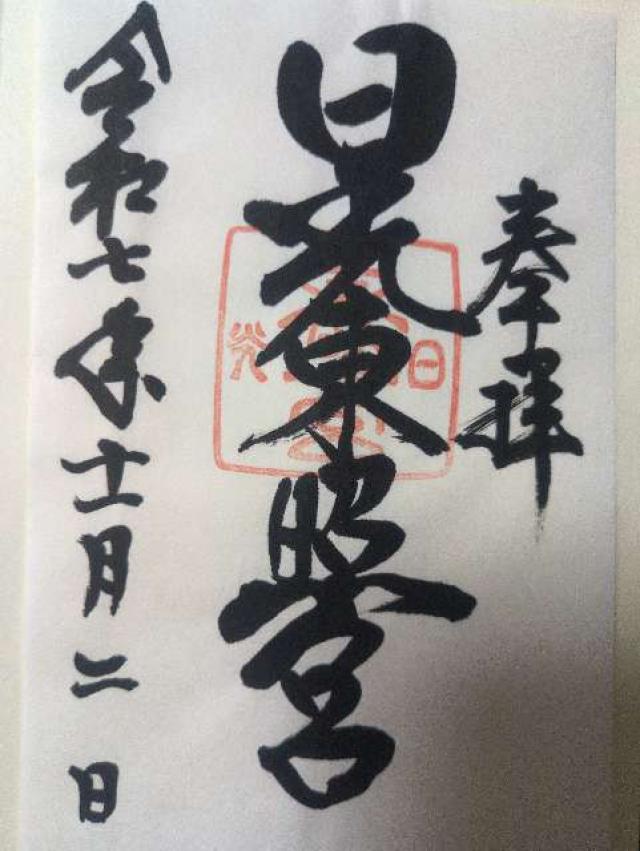 奉拝
日光東照宮
令和七年十一月二日
日光